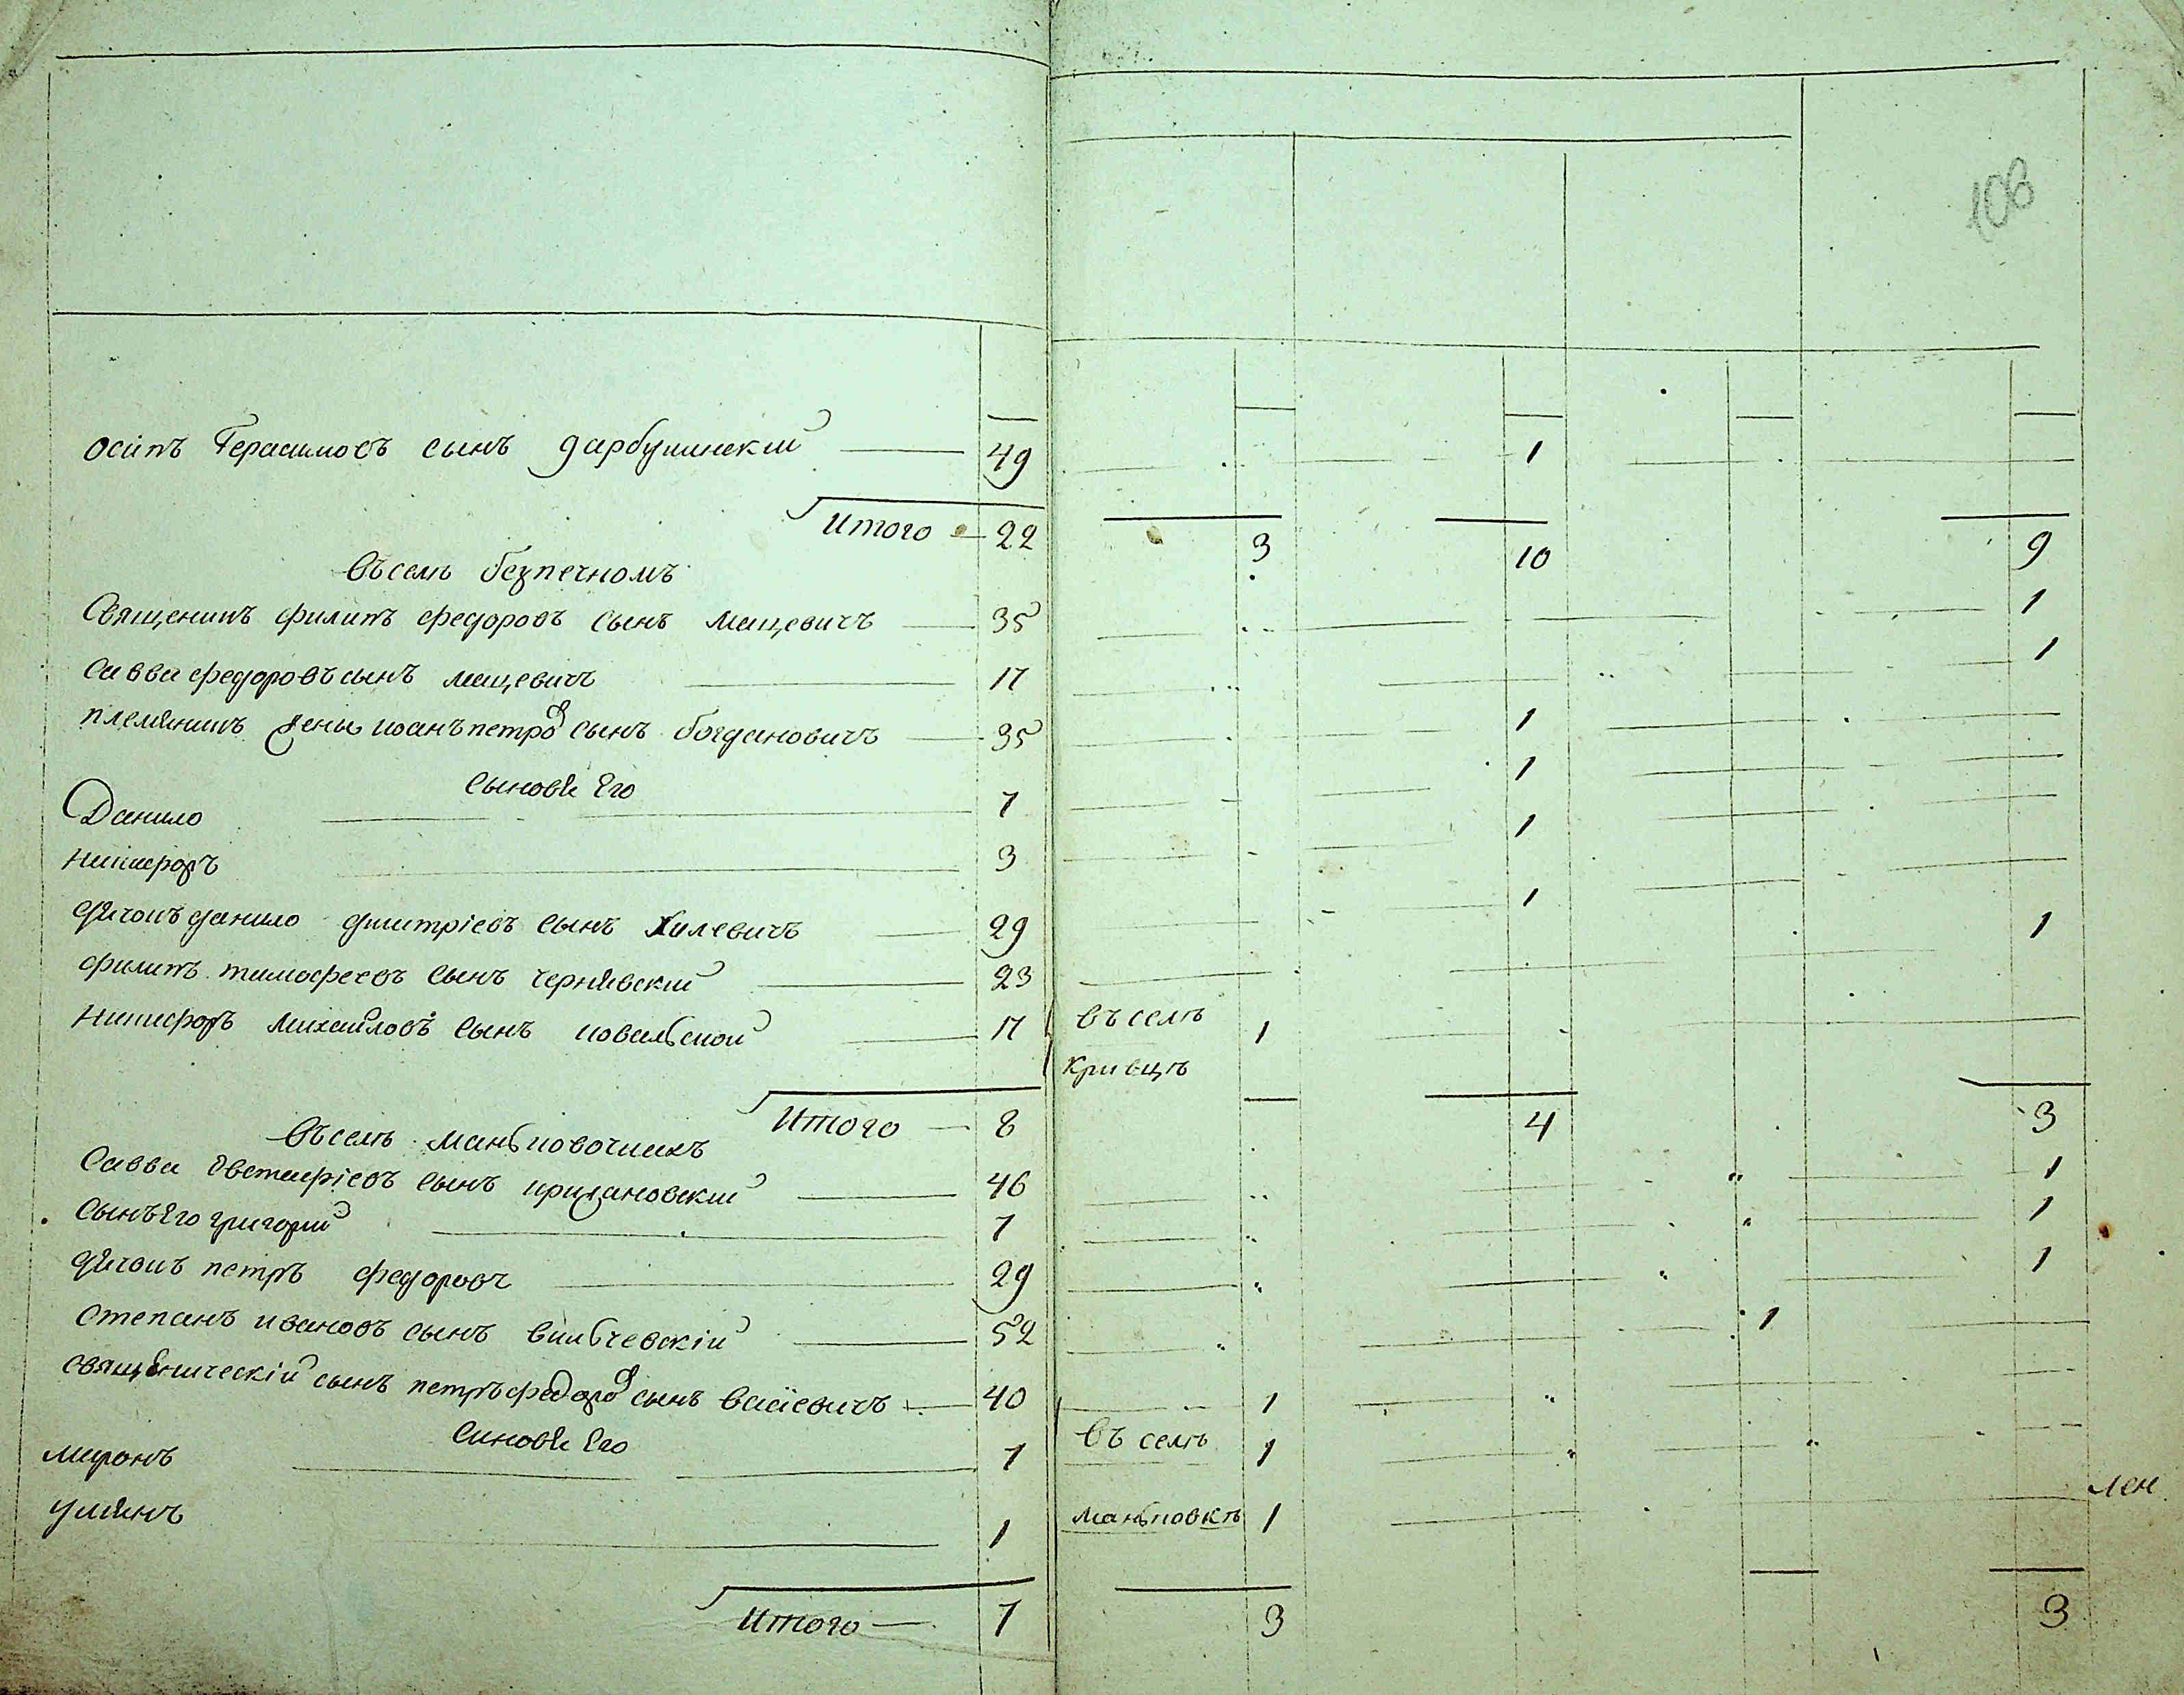 106
осипъ Герасимовъ сынъ дарбушинский 49 1
Итого 22 3 10 9
въ селѣ безпечномъ
Священикъ филипъ федоровъ сынъ мацевичъ 35 1
Савва федоровъ сынъ мацевичъ 17 1
племяникъ жены иоанъ петровъ сынъ богдановичъ 35 1
Сыновя Его
Данило 7 1
Никифоръ 3 1
дячокъ данило дмитріевъ сынъ Хилевичъ 29 1
филипъ тимофеевъ сынъ чернявский 23 1
Никифоръ Михайловъ сынъ ковальской 17 въ селѣ Кривцѣ 1
Итого 8 4 3
въ селѣ маньковочкахъ
Савва Евстафіевъ сынъ крижановский 46 1
Сынъ Его григорий 7 1
дячокъ петръ федоровъ 29 1
Степанъ ивановъ сынъ вильчевский 52 1
священический сынъ петръ федоровъ сынъ 40 1
Синовя Его
миронъ 7 въ селѣ 1
улянъ 1 маньковкѣ 1
Итого 7 3 3